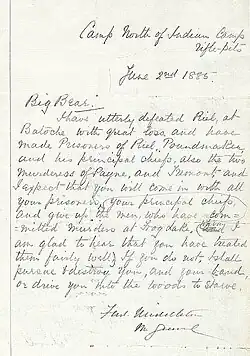 Camp North of Indian Camp
rifle-pits
June 2nd 1885.
Big Bear.
I have utterly defeated Riel, at
Batoche with great loss, and have
made Prisoners of Riel, Poundmaker,
and his principal chiefs, also the two
murderers of Payne, and Fremont and
I expect that you will come in with all
your prisoners, your principal chiefs,
and give up the men, who have com-
mitted murders at Frogdake, I
am glad to hear that you have treated
them fairly well. If you do not, I shall
pursue & destroy you, and your band,
or drive you into the woods to starve.
Fred Middleton
M General